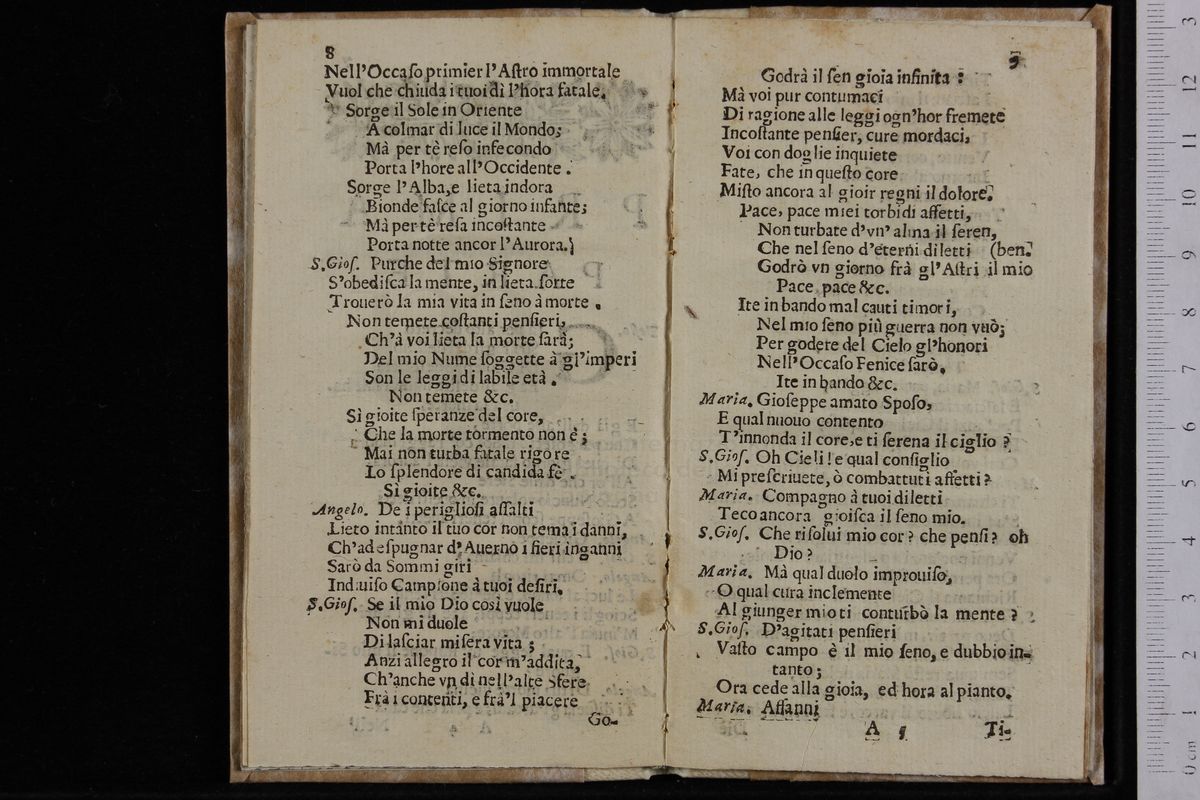 8
Nell'Occaſo primier l'Aſtro immortale
Vuol che chiuda i tuoi dì l'hora fatale.
Sorge il Sole in Oriente
A colmar di luce il Mondo;
Mà per tè reſo infecondo
Porta l'hore all'Occidente.
Sorge l'Alba, e lieta indora
Bionde faſce al giorno infante;
Mà per tè reſa incoſtante
Porta notte ancor l'Aurora.
S.Gioſ. Purche del mio Signore
S'obediſca la mente, in lieta ſorte
Trouerò la mia vita in ſeno à morte.
Non temete coſtanti penſieri,
Ch'à voi lieta la morte ſarà;
Del mio Nume ſoggette à gl'imperi
Son le leggi di labile età.
Non temete &c.
Sì gioite ſperanze del core,
Che la morte tormento non è;
Mai non turba fatale rigore
Lo ſplendore di candida fè.
Sì gioite &c.
Angelo. De i periglioſi aſſalti
Lieto intanto il tuo cor non tema i danni,
Ch'ad eſpugnar d'Auerno i fieri inganni
Sarò da Sommi giri
Indiuiſo Campione à tuoi deſiri.
S.Gioſ. Se il mio Dio così vuole
Non mi duole
Di laſciar miſera vita;
Anzi allegro il cor m'addita,
Ch'anche vn dì nell'alte Sfere
Frà i contenti, e frà'l piacere
Go-
9
Godrà il ſen gioia infinita:
Mà voi pur contumaci
Di ragione alle leggi ogn'hor fremete
Incoſtante penſier, cure mordaci,
Voi con doglie inquiete
Fate, che in queſto core
Miſto ancora al gioir regni il dolore.
Pace, pace miei torbidi affetti,
Non turbate d'vn'alma il ſeren,
Che nel ſeno d'eterni diletti (ben.
Godrò vn giorno frà gl'Aſtri il mio
Pace, pace &c.
Ite in bando mal cauti timori,
Nel mio ſeno più guerra non vuò;
Per godere del Cielo gl'honori
Nell'Occaſo Fenice ſarò.
Ite in bando &c.
Maria. Gioſeppe amato Spoſo,
E qual nuouo contento
T'innonda il core, e ti ſerena il ciglio?
S.Gioſ. Oh Cieli! e qual conſiglio
Mi preſcriuete, ò combattuti affetti?
Maria. Compagno à tuoi diletti
Teco ancora gioiſca il ſeno mio.
S.Gioſ. Che riſolui mio cor? che penſi? oh
Dio?
Maria. Mà qual duolo improuiſo,
O qual cura inclemente
Al giunger mio ti conturbò la mente?
S.Gioſ. D'agitati penſieri
Vaſto campo è il mio ſeno, e dubbio in-
tanto;
Ora cede alla gioia, ed hora al pianto.
Maria. Affanni
A 5 Ti-
0 cm 1 2 3 4 5 6 7 8 9 10 11 12 13